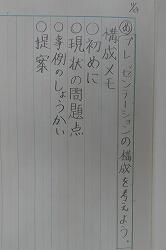 めプレゼンテーションの構成を考えよう。
構成メモ
○初めに
○現状の問題点
○事例のしょうかい
○提案